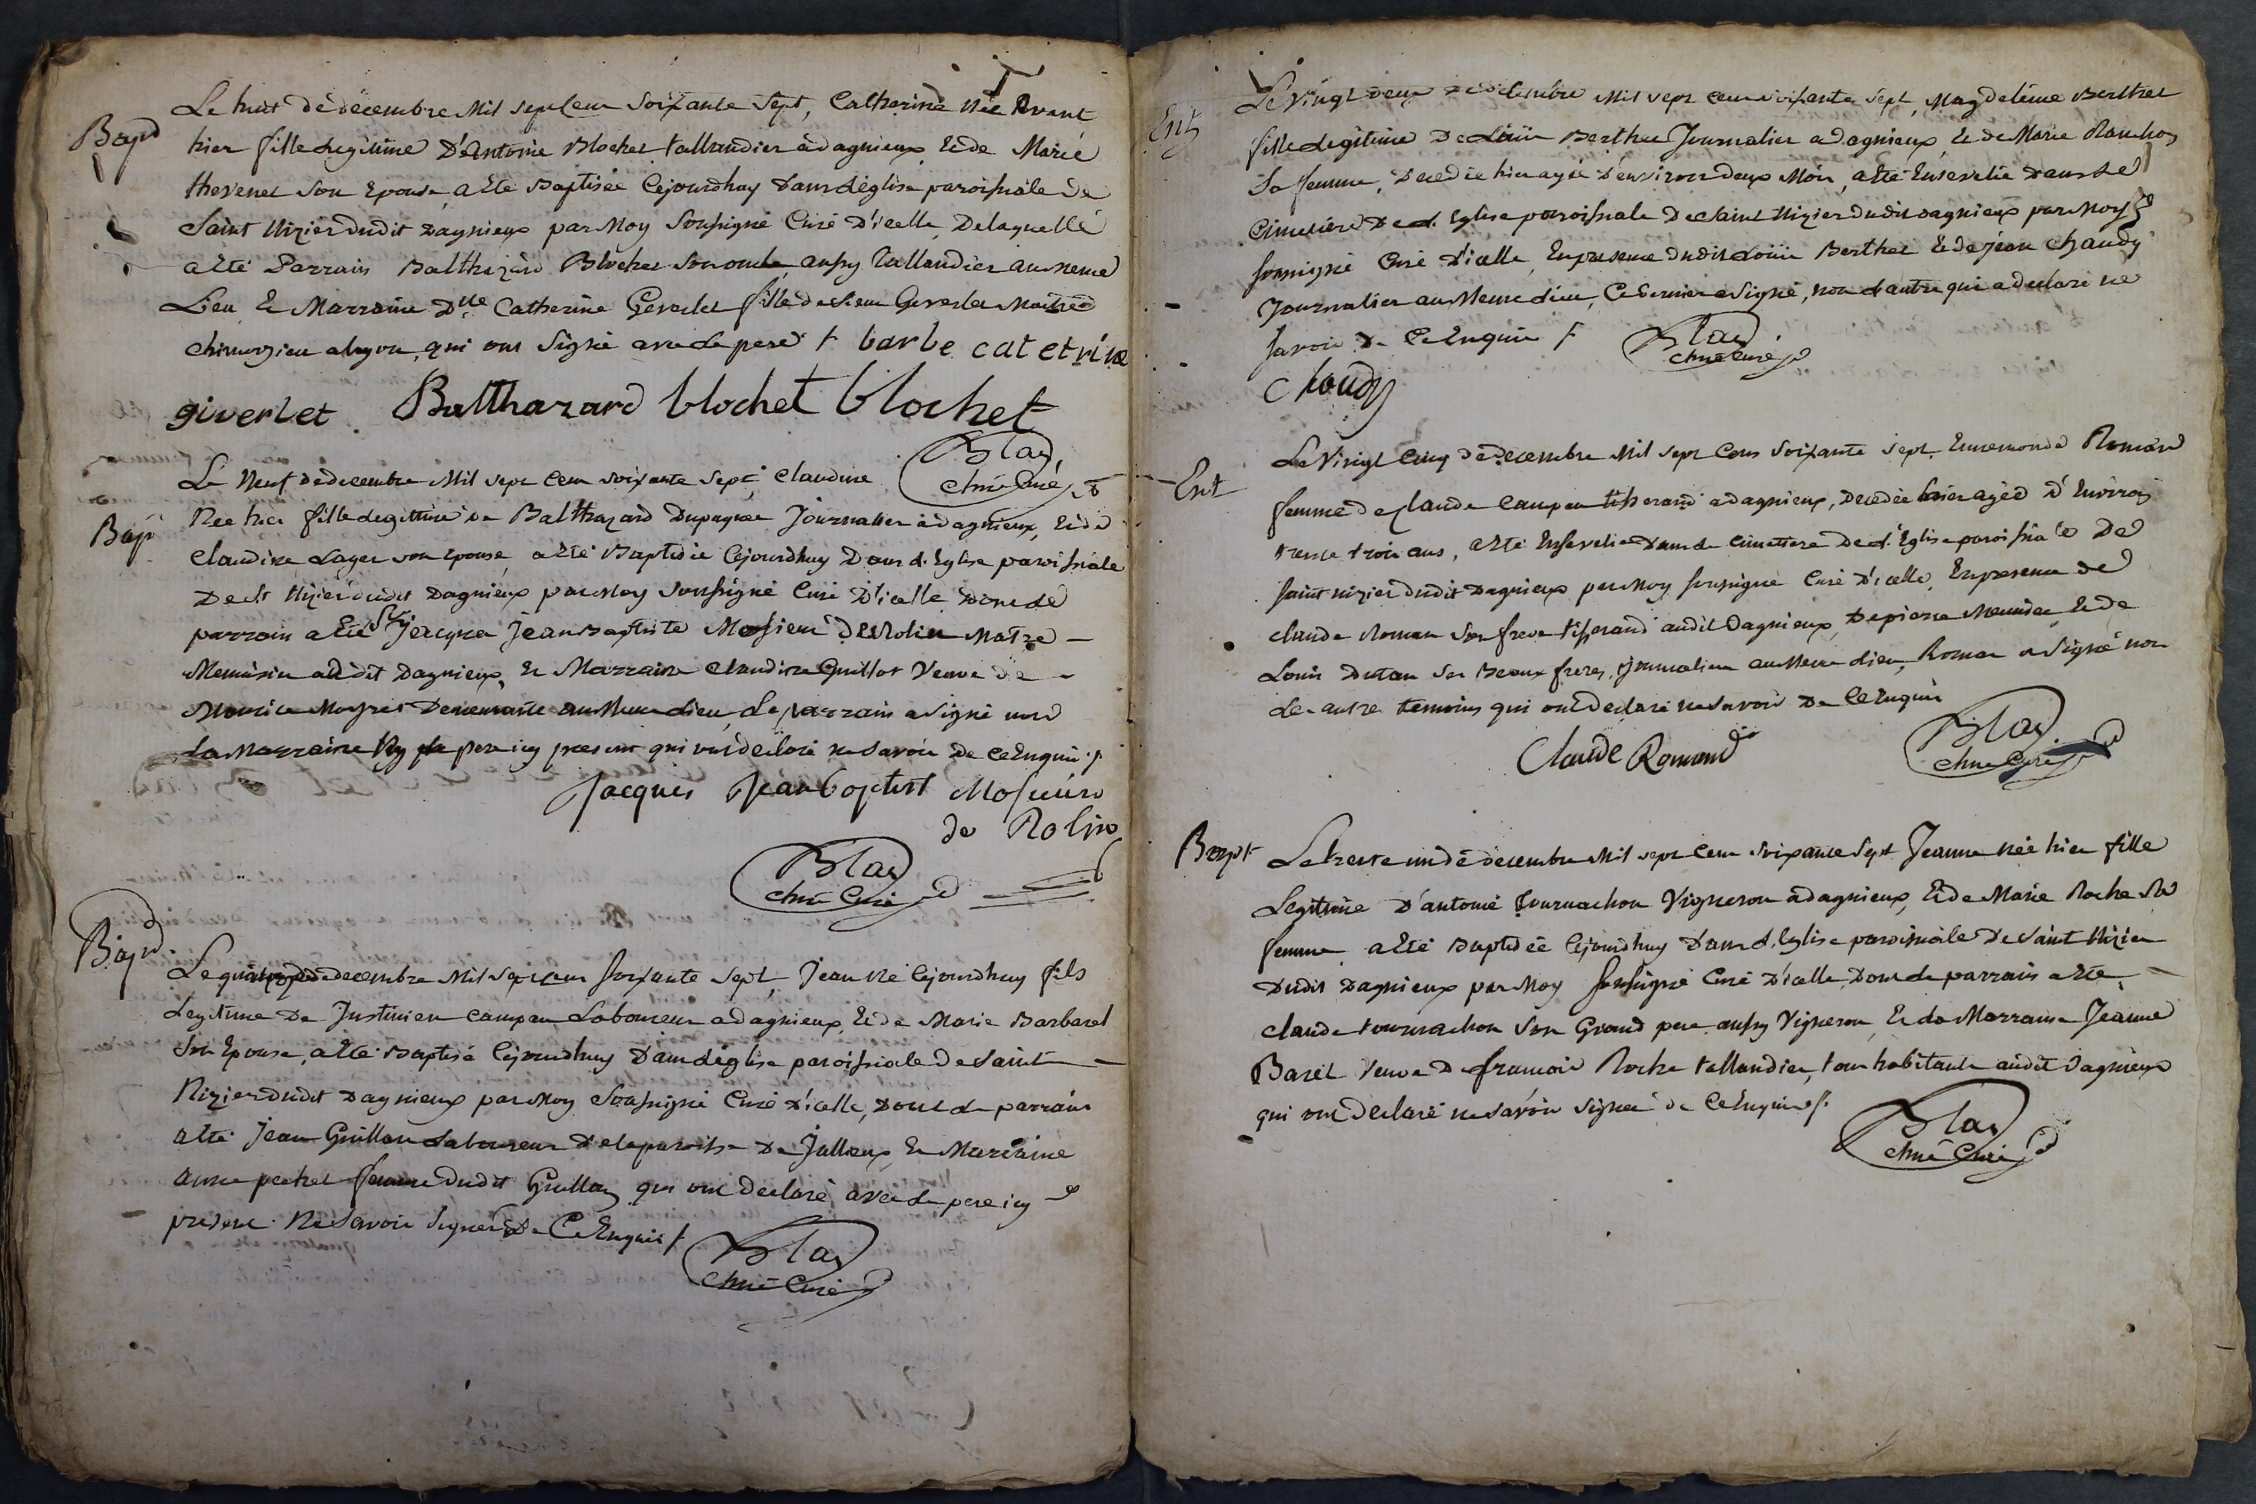 Bapt
Le huit de decembre Mil sept cent soixante sept, Catherine née avant
hier fille Legitime D'Antoine Blochet tallandier à dagnieux et de Marie
thevenet son Epouse, a Eté Baptisée Cejourdhuy Dans L'église paroissiale de
Saint Nizier dudit Dagnieux par Moy Soussigné Curé D'icelle Delaquelle
a Eté Parrain Balthazard Blochet son oncle aussy Tallandier au meme
Lieu et Marraine Dlle Catherine Geverlet fille de sieur Geverlet Maitre
chirurgien alyon, qui ont Signé avec le pere / barbe catetrine
giverlet Balthazard blochet blochet
Blad
curé
Bapt
Le Neuf de decembre Mil sept cent soixante sept Claudine
Née hier fille legittime de Balthazard Journalier à dagnieux, et de
Claudine Layer son epouse, a Eté Baptisée Cejourdhuy Dans L'Eglise paroissiale
De St Nizier dudit Dagnieux par Moy Soussigné Curé D'icelle Dont le
parrain a Eté Sr Jacque Jean Baptiste Mossieur De Rolin Matre
Menuisier audit Dagnieux, et Marraine Claudine Guillot Veuve de
Demeurante au Meme Lieu, Le parrain a signé non
La Marraine Ny le pere icy present qui ont declaré ne savoir De ce Enquis /.
Jacques Jean baptist Mosieuro
de Rolin
Blad
curé
Bapt
Le decembre Mil sept cent soixante sept, Jean né Cejourdhuy fils
Legitime De Justinien campan Laboureur a dagnieux, et de Marie Barbaret
Son Epouse, a Eté Baptisé Cejourdhuy Dans L'église paroissiale de saint
Nizier dudit Dagnieux par Moy Soussigné Curé D'icelle, Dont le parrain
a Eté Jean Guillon Laboureur De la paroisse De Jallieux, et Marraine
anne femme dudit Guillon qui ont declaré avec le pere icy
present Ne Savoir signer De Ce Enquis /.
Blad
curé
Ent
Le Vingt deux de decembre Mil sept cent soixante sept, Magdeleine Berthet
fille legitime De Loüis Berthet Journalier a Dagnieux, et de Marie
Sa femme, Decedée hier agée D'environ deux Mois, a Eté Ensevelie Dans le
Cimetiere De L'Eglise paroissiale De Saint Nizier dudit dagnieux par Moy
soussigné Curé D'icelle En presence dudit Loüis Berthet et de jean chaudy
Journalier au Meme Lieu, Ce dernier a Signé, non L'autre qui a declaré ne
savoir De Ce Enquis /
Blad
curé
Chaudy
Ent
Le Vingt cinq de decembre Mil sept Cent soixante sept, Ennemonde Roman
femme de Claude Campan tisserand a dagnieux, Decedée hier agée D'Environ
trente trois ans, a Eté Ensevelie Dans le Cimettiere De L'Eglise paroissiale De
saint nizier dudit Dagnieux par Moy soussigné Curé D'icelle, En presence de
Claude Roman Son frere tisserand audit Dagnieux, De pierre Meunier et de
Louis Dutan Ses Beaux freres, Journaliers au Meme Lieu, Roman a Signé non
Les autres temoins qui ont Declaré ne savoir De Ce Enquis
Claude Romand
Blad
curé
Bapt
Le trente un de decembre Mil sept cent soixante sept Jeanne née hier fille
Legitime D'antoine tournachon Vigneron a dagnieux, et de Marie Roche Sa
femme, a Eté Baptisée Cejourdhuy Dans L'Eglise paroissiale De Saint Nizier
Dudit Dagnieux par Moy Soussigné Curé D'icelle, Dont le parrain a Eté
Claude tournachon Son Grand pere aussy Vigneron, et la Marraine Jeanne
Baret Veuve De francois Roche tallandier, tous habitants audit Dagnieux
qui ont declaré ne savoir signer de Ce Enquis /.
Blad
curé